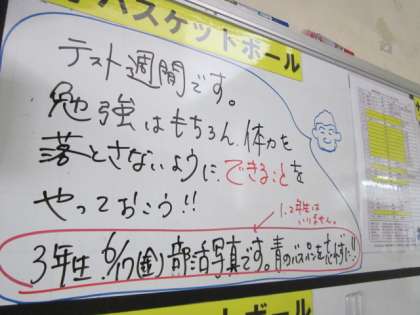 バスケットボール
テスト週間です。
勉強はもちろん、体力を
落とさないように、できることを
やっておこう!!
1、2年生は
いりません。
3年生 6/17(金)部活写真です。青のバスパンを忘れずに!!